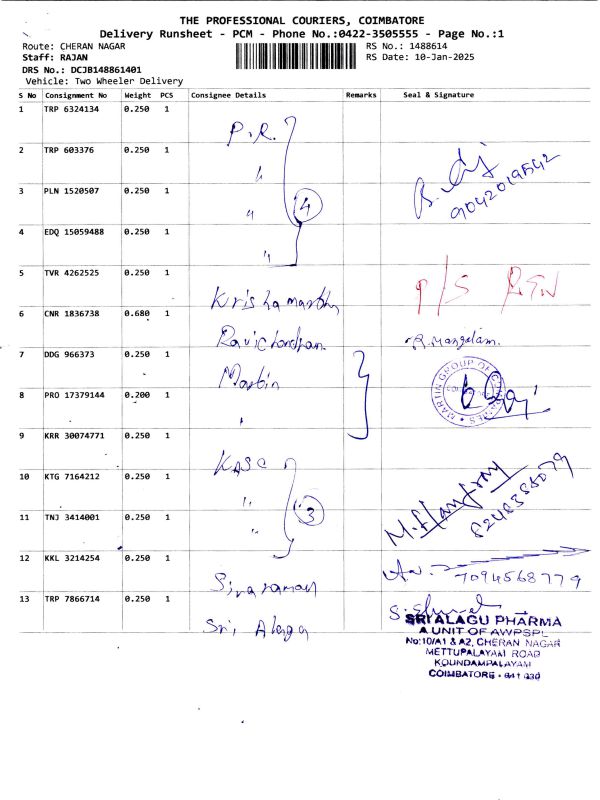 THE PROFESSIONAL COURIERS, COIMBATORE
Delivery Runsheet - PCM - Phone No.:0422-3505555 - Page No.:1
Route: CHERAN NAGAR RS No.: 1488614
Staff: RAJAN RS Date: 10-Jan-2025
DRS No.: DCJB148861401
Vehicle: Two Wheeler Delivery
S No Consignment No Weight PCS Consignee Details Remarks Seal & Signature
1 TRP 6324134 0.250 1 P.R.
2 TRP 603376 0.250 1 "
3 PLN 1520507 0.250 1 " 4 9042019542
4 EDQ 15059488 0.250 1 "
5 TVR 4262525 0.250 1 Krishamarthy P/S
6 CNR 1836738 0.680 1 Ravichandran R. Mangalam.
7 DDG 966373 0.250 1 Martin
8 PRO 17379144 0.200 1 " MARTIN GROUP OF COMPANIES
9 KRR 30074771 0.250 1 KASC
10 KTG 7164212 0.250 1 "
11 TNJ 3414001 0.250 1 " 3 8248388079
12 KKL 3214254 0.250 1 Sivaraman 7094568779
13 TRP 7866714 0.250 1 Sri Alagu
SRI ALAGU PHARMA
A UNIT OF AWPSPL
No:10/A1 & A2, CHERAN NAGAR
METTUPALAYAM ROAD
KOUNDAMPALAYAM
COIMBATORE - 641 030